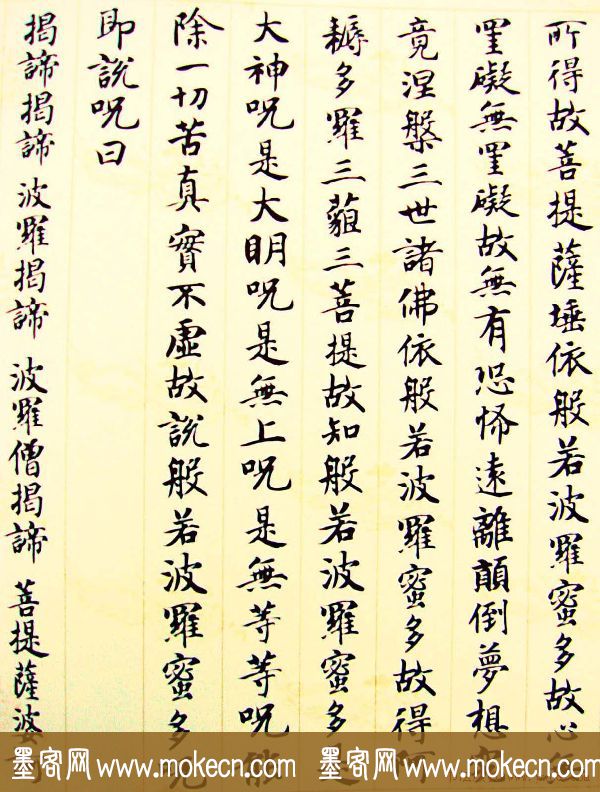 所得故菩提薩埵依般若波羅蜜多故心無
罣礙無罣礙故無有恐怖遠離顛倒夢想究
竟涅槃三世諸佛依般若波羅蜜多故得阿
耨多羅三藐三菩提故知般若波羅蜜多是
大神呪是大明呪是無上呪是無等等呪能
除一切苦真實不虛故說般若波羅蜜多呪
即說呪曰
揭諦揭諦 波羅揭諦 波羅僧揭諦 菩提薩婆訶
墨客网 www.mokecn.com 墨客网 www.mokecn.com